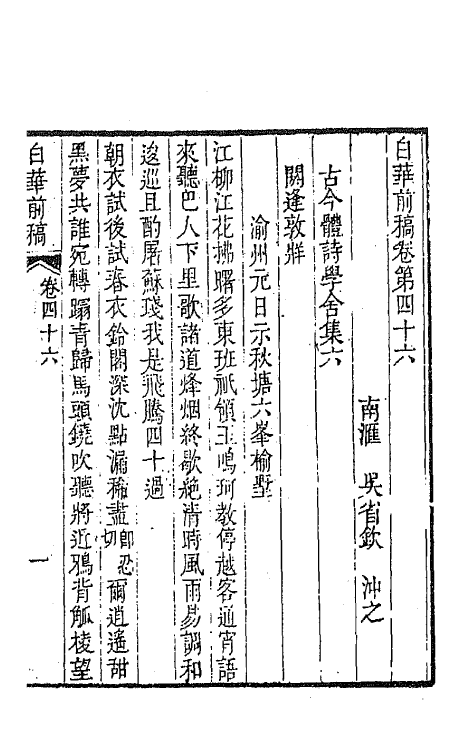 白華前稿卷第四十六
南滙　吳省欽　沖之
古今體詩學舍集六
閼逢敦牂
渝州元日示秋塘六峯榆墅
江柳江花拂曙多東班祇領玉鳴珂教停越客通宵語
來聽巴人下里歌諸道烽烟終歇絶清時風雨易調和
逡巡且酌屠蘇琖我是飛騰四十過
朝衣試後試春衣鈴閣深沈點漏稀盡即忍切爾逍遙甜
黑夢共誰宛轉蹋青歸馬頭鐃吹聽將近鴉背觚棱望
白華前稿　卷四十六　一